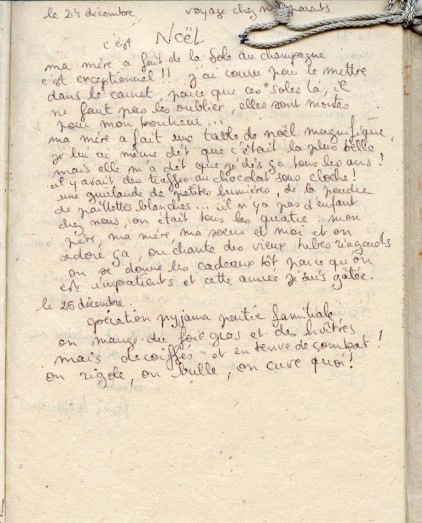 le 24 décembre voyage chez mes parents
c'est Noël
ma mère a fait de la sole au champagne
c'est exceptionnel !! j'ai couru pour le mettre
dans le carnet, parce que ces soles là, il
ne faut pas les oublier, elles sont mortes
pour mon bonheur...
ma mère a fait une table de noël magnifique,
je lui ai même dit que c'était la plus belle
mais elle m'a dit que je dis ça tous les ans !
il y avait des truffes au chocolat sous cloche !
une guirlande de petites lumières, de la poudre
de paillettes blanches... il n'y a pas d'enfant
chez nous, on était tous les quatre : mon
père, ma mère, ma soeur et moi et on
adore ça, on chante des vieux tubes ringards
on se donne les cadeaux tôt parce qu'on
est impatients et cette année je suis gâtée.
le 25 décembre
opération pyjama partie familiale
on mange du foie gras et des huîtres
mais décoiffés et en tenue de combat !
on rigole, on bulle, on cuve quoi !